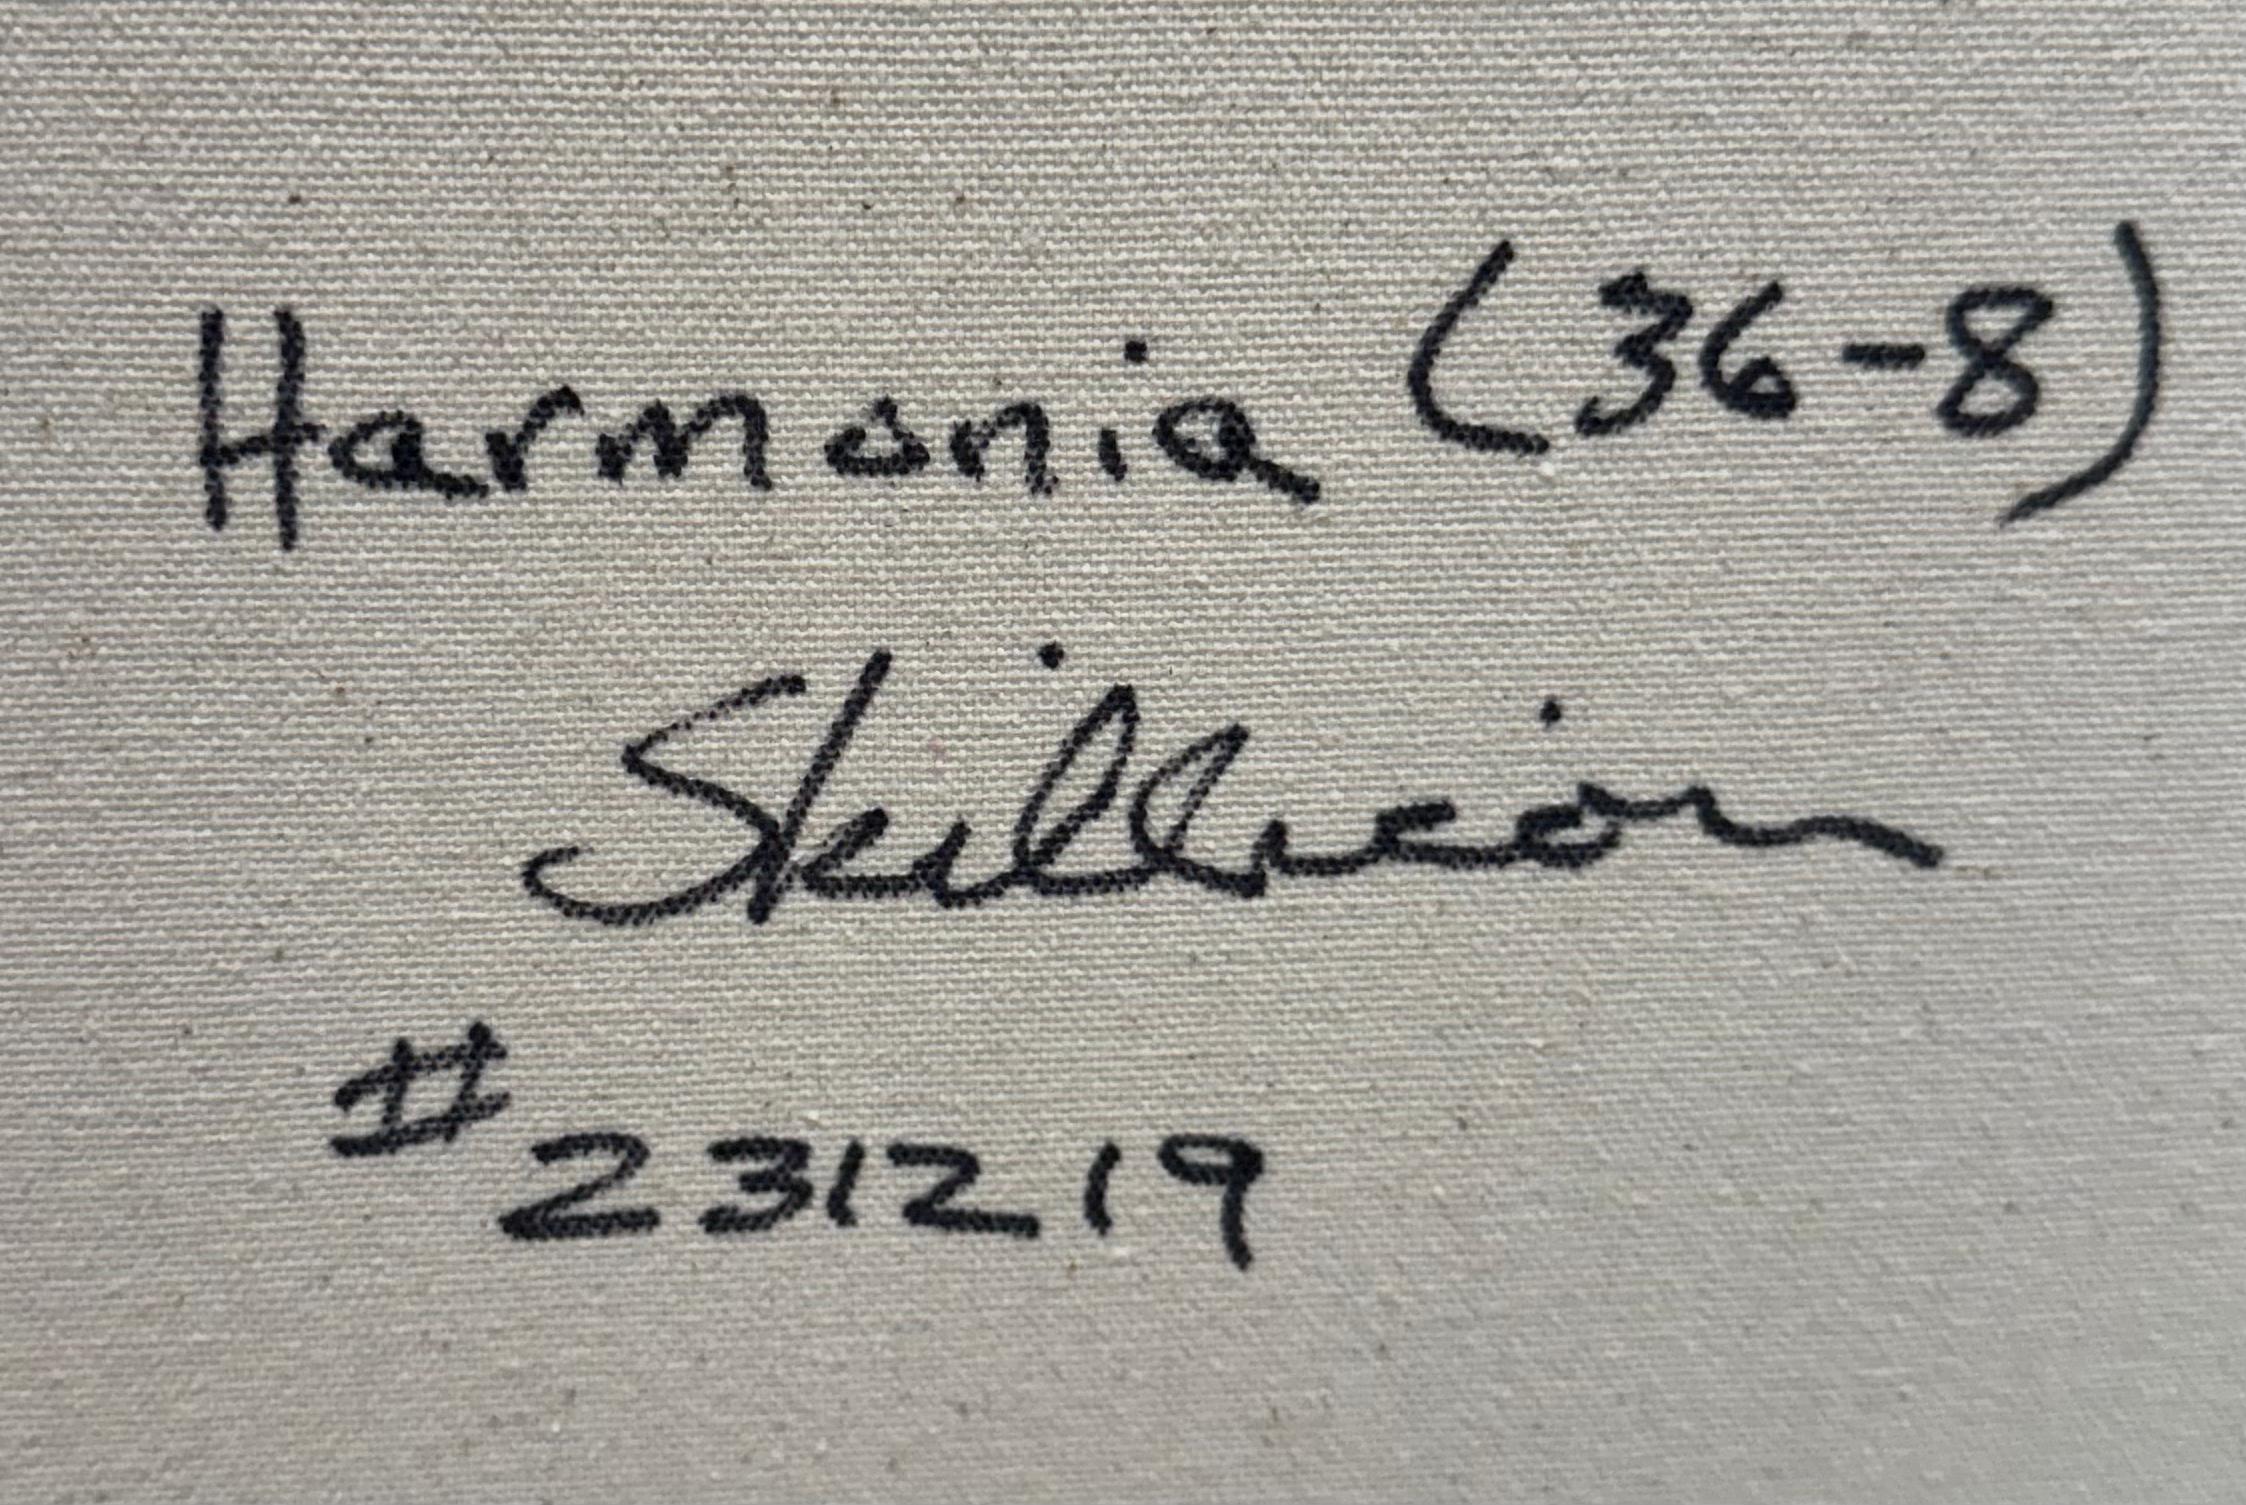 Harmonia (36-8)
Skillicorn
#231219